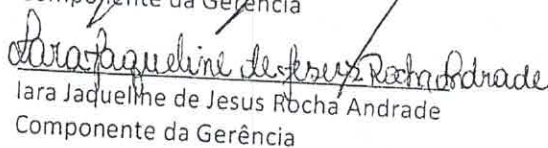 Componente da Gerência
Iara Jaqueline de Jesus Rocha Andrade
Iara Jaqueline de Jesus Rocha Andrade
Componente da Gerência